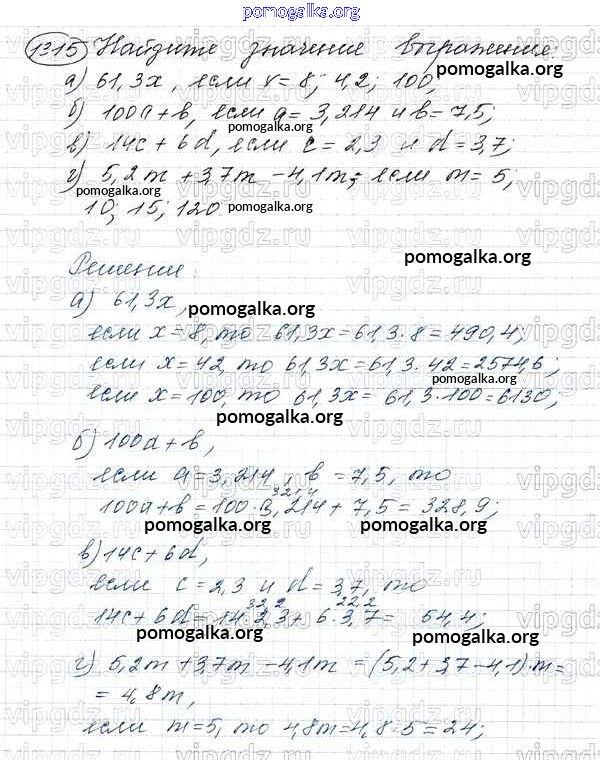 pomogalka.org
1315 Найдите значение выражения:
pomogalka.org
а) 61,3x, если x = 8; 42; 100,
б) 100a+b, если a = 3,214 и b = 7,5;
pomogalka.org
в) 14c + 6d, если c = 2,3 и d = 3,7;
г) 5,2m + 3,7m - 4,1m, если m = 5;
pomogalka.org
10; 15; 120 pomogalka.org
Решение: pomogalka.org
а) 61,3x, pomogalka.org
если x = 8, то 61,3x = 61,3 · 8 = 490,4;
если x = 42, то 61,3x = 61,3 · 42 = 2574,6;
pomogalka.org
если x = 100, то 61,3x = 61,3 · 100 = 6130;
pomogalka.org
б) 100a + b,
если a = 3,214, b = 7,5, то
321,4
100a+b = 100 · 3,214 + 7,5 = 328,9;
pomogalka.org pomogalka.org
в) 14c + 6d,
если c = 2,3 и d = 3,7, то
32,2 22,2
14c + 6d = 14 · 2,3 + 6 · 3,7 = 54,4;
pomogalka.org pomogalka.org
г) 5,2m + 3,7m - 4,1m = (5,2+3,7-4,1)·m =
= 4,8m,
если m = 5, то 4,8m = 4,8 · 5 = 24;
vipgdz.ru